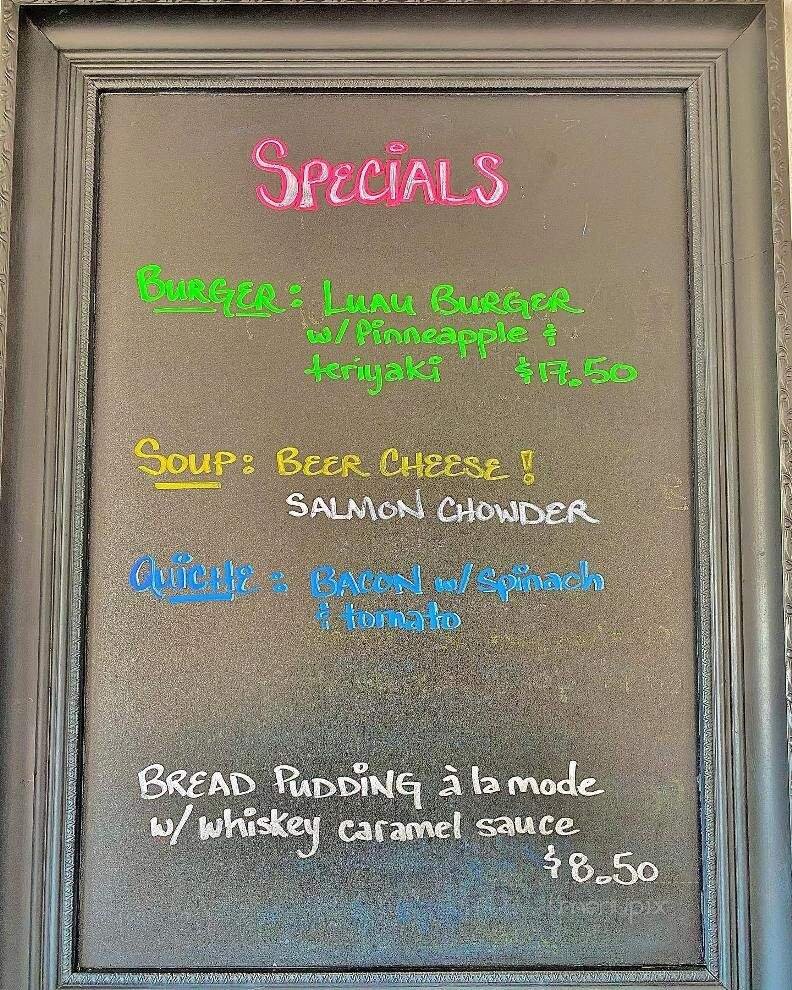 SPECIALS
BURGER: LUAU BURGER
w/ Pinneapple &
teriyaki $17.50
SOUP: BEER CHEESE!
SALMON CHOWDER
QUICHE: BACON w/ Spinach
& tomato
BREAD PUDDING à la mode
w/ whiskey caramel sauce
$8.50
menupix